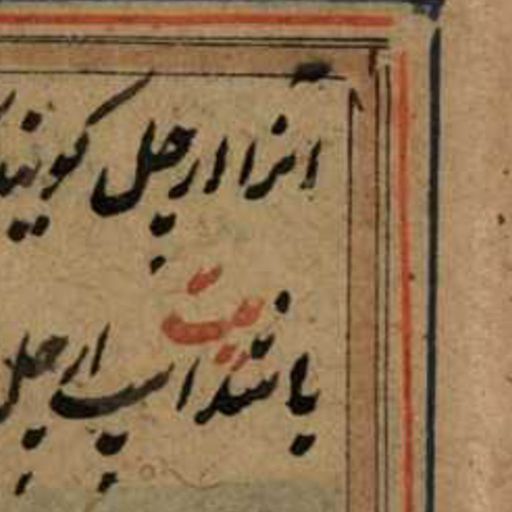 آنرا ارجل کویند
بیت
باشد اسپ ارجل